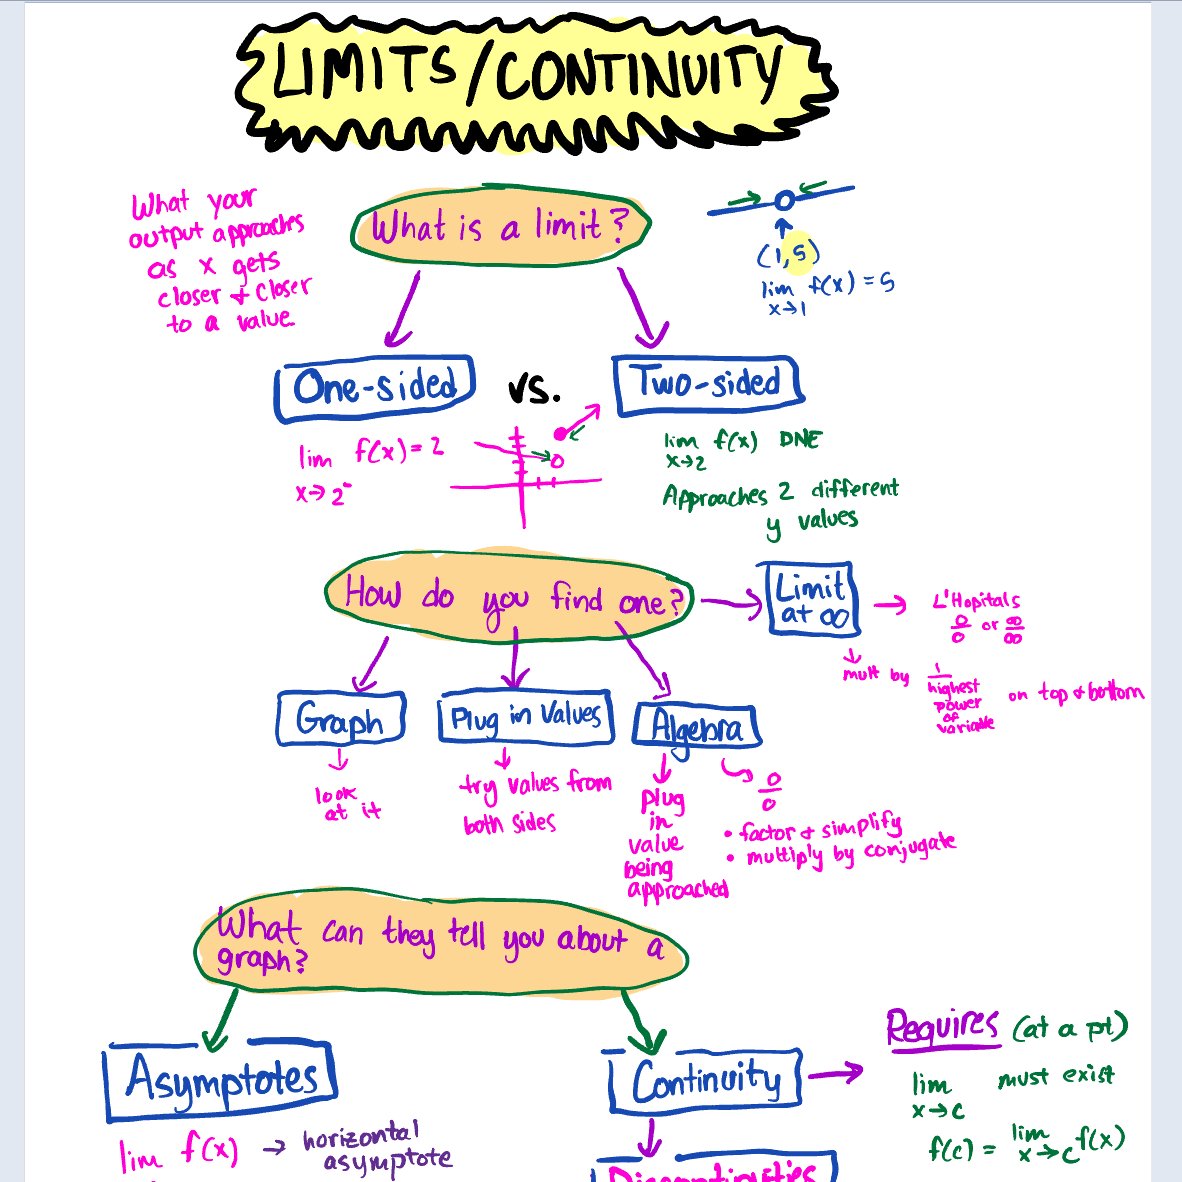 LIMITS/CONTINUITY
What your
output approaches
as x gets
closer & closer
to a value.
What is a limit?
(1,5)
lim f(x) = 5
x→1
One-sided
vs.
Two-sided
lim f(x) = 2
x→2⁻
lim f(x) DNE
x→2
Approaches 2 different
y values
How do you find one?
Limit
at ∞
L'Hopitals
0/0 or ∞/∞
mult by 1/highest power of variable on top & bottom
Graph
look
at it
Plug in Values
try values from
both sides
Algebra
plug
in
value
being
approached
0/0
• factor & simplify
• multiply by conjugate
What can they tell you about a
graph?
Asymptotes
lim f(x) → horizontal
asymptote
Continuity
Requires (at a pt)
lim must exist
x→c
f(c) = lim f(x)
x→c
Discontinuities